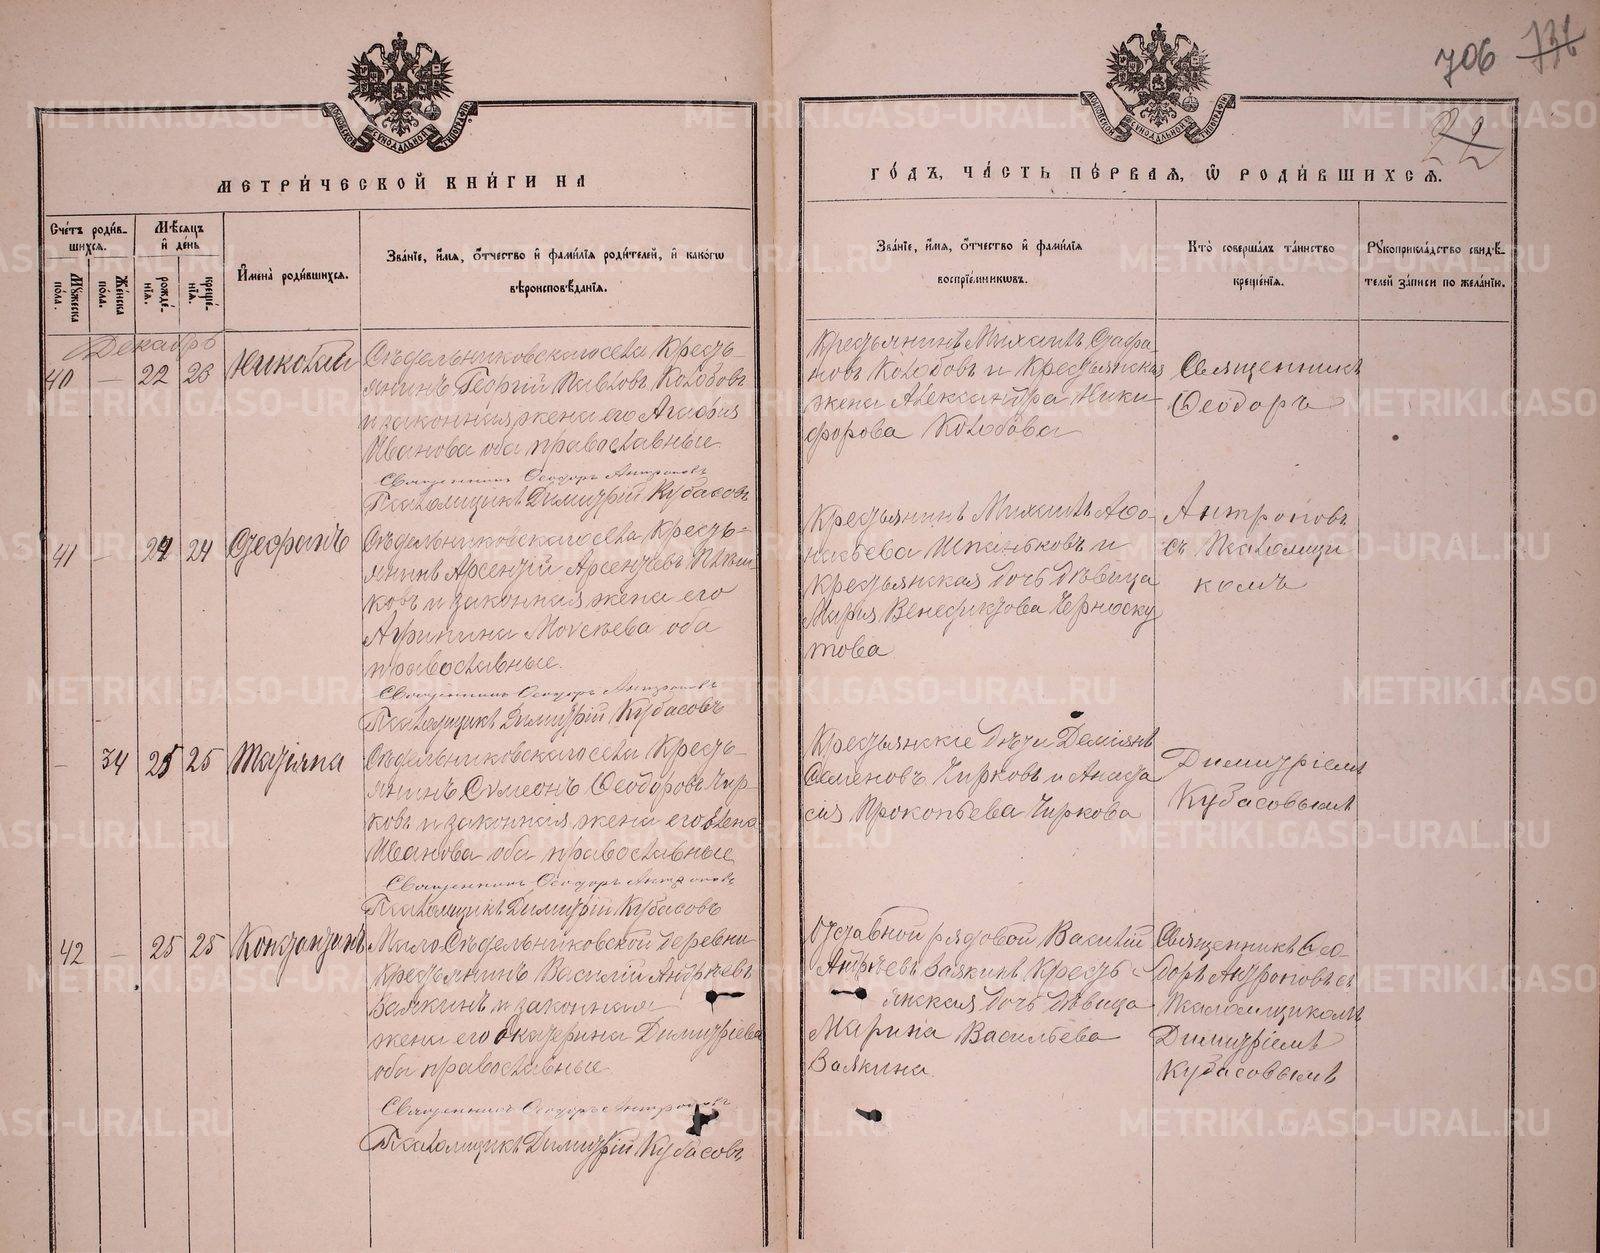 706 736
22
МЕТРИ́ЧЕСКОЙ КНИ́ГИ НА
ГО́ДЪ, ЧА́СТЬ ПЕ́РВАЯ, Ѿ РОДИ́ВШИХСѦ.
Сче́тъ роди́в-
шихсѧ.
Мѣ́сяцъ
и҆ де́нь
Му́жеска
пола.
Же́нска
пола.
рожде́-
нїѧ.
креще́-
нїѧ.
И҆мена̀ роди́вшихсѧ.
Зва́нїе, и҆́мѧ, ѻ҆́тчество и҆ фами́лїѧ роди́телей, и҆ како́гѡ
вѣроисповѣ́данїѧ.
Зва́нїе, и҆́мѧ, ѻ҆́тчество и҆ фами́лїѧ
воспрїе́мникѡвъ.
Кто̀ соверша́лъ та́инство
креще́нїѧ.
Рꙋкоприкла́дство свидѣ́-
телей за́писи по жела́нїю.
Декабрь
40 — 22 23 Николай
Сѣдельниковскаго села Кресть-
янинъ Георгій Павловъ Колобовъ
и законная жена его Агафія
Иванова оба православные.
Священникъ Ѳеодоръ Антроповъ
Псаломщикъ Димитрій Кубасовъ
Крестьянинъ Михаилъ Стефа-
новъ Колобовъ и Крестьянская
жена Александра Ники-
форова Колобова
Священникъ
Ѳеодоръ
41 — 24 24 Стефанъ
Сѣдельниковскаго села Кресть-
янинъ Арсентій Арсентьевъ
ковъ и законная жена его
Агрипина Моисѣева оба
православные.
Священникъ Ѳеодоръ Антроповъ
Псаломщикъ Димитрій Кубасовъ
Крестьянинъ Михаилъ Афо-
насьева и
Крестьянская дочь дѣвица
Марія Венедиктова Черноску
това
Антроповъ
съ Псаломщи
комъ
— 34 25 25 Татіяна
Сѣдельниковскаго села Кресть-
янинъ Симеонъ Ѳеодоровъ Чир-
ковъ и законная жена его Елена
Иванова оба православные
Священникъ Ѳеодоръ Антроповъ
Псаломщикъ Димитрій Кубасовъ
Крестьянскіе дѣти Деміянъ
Семеновъ Чирковъ и Анаста
сія Прокопьева Чиркова
Димитріемъ
Кубасовымъ
42 — 25 25 Константинъ
Мало Сѣдельниковской деревни
Крестьянинъ Василій Андрѣевъ
Ваякинъ и законная
жена его Екатерина Димитріева
оба православные
Священникъ Ѳеодоръ Антроповъ
Псаломщикъ Димитрій Кубасовъ
Отставной рядовой Василій
Андрѣевъ Ваякинъ Кресть
янская дочь дѣвица
Марина Васильева
Ваякина.
Священникъ Ѳео-
доръ Антроповъ съ
Псаломщикомъ
Димитріемъ
Кубасовымъ
METRIKI.GASO-URAL.RU